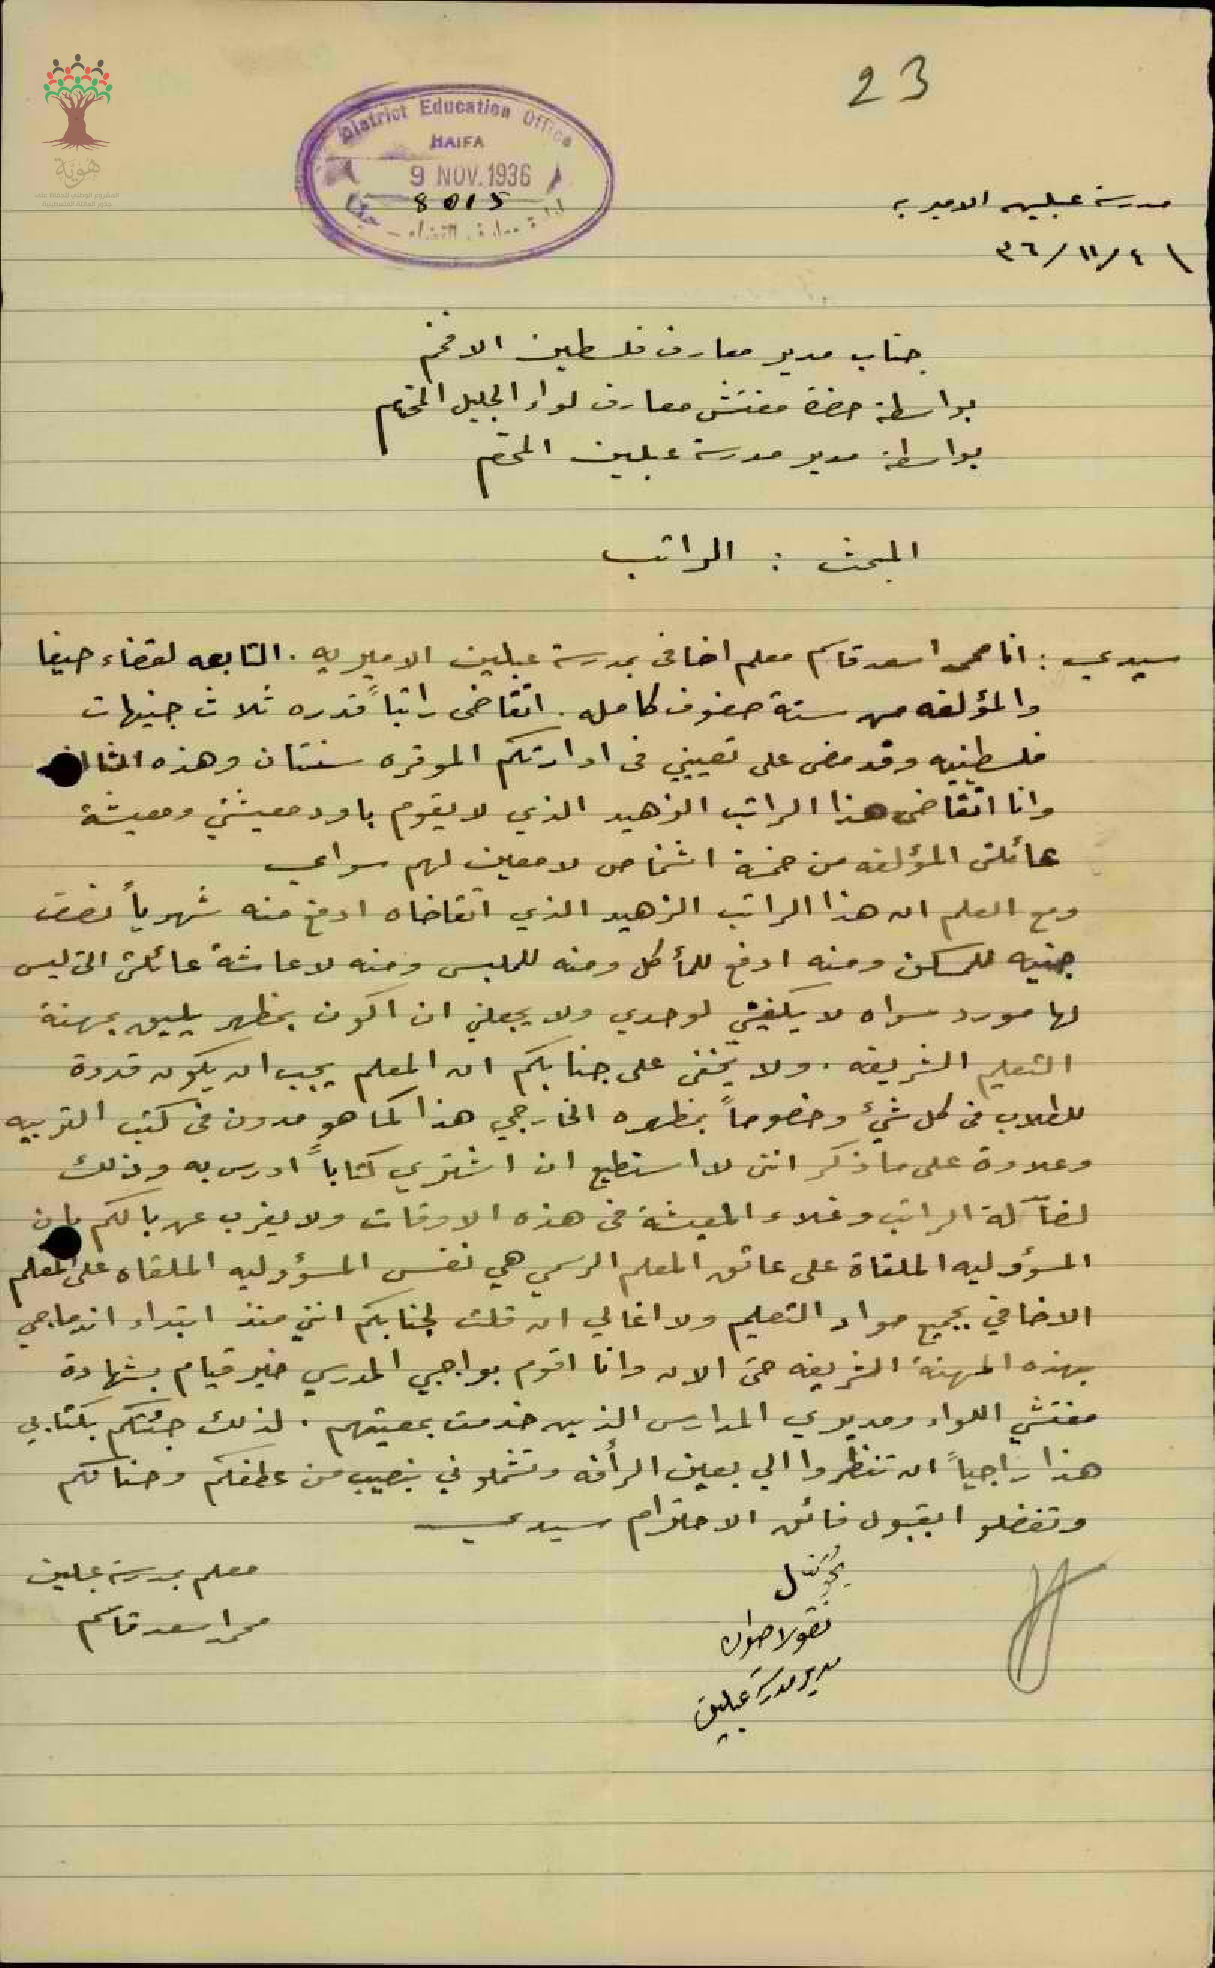 23
District Education Office
HAIFA
9 NOV. 1936
8015
هوية
مدرسة عبلين الاميريه
٣٦/١١/٤
جناب مدير معارف فلسطين الافخم
بواسطة حضرة مفتش معارف لواء الجليل المحترم
بواسطة مدير مدرسة عبلين المحترم
المبحث : الراتب
سيدي : انا محمد اسعد قاسم معلم اضافي بمدرسة عبلين الاميريه . التابعه لقضاء حيفا
والمؤلفه من ستة صفوف كامله . اتقاضى راتباً قدره ثلاث جنيهات
فلسطينيه وقد مضى على تعييني في ادارتكم الموقره سنتان وهذه الثالثه
وانا اتقاضى هذا الراتب الزهيد الذي لا يقوم باود معيشتي ومعيشة
عائلتي المؤلفه من خمسة اشخاص لا معين لهم سواي
ومع العلم ان هذا الراتب الزهيد الذي اتقاضاه ادفع منه شهرياً نصف
جنيه للمسكن ومنه ادفع للمأكل ومنه للملبس ومنه لاعاشة عائلتي التي ليس
لها مورد سواه لا يكفيني لوحدي ولا يجعلني ان اكون بمظهر يليق بمهنة
التعليم الشريفه . ولا يخفى على جنابكم ان المعلم يجب ان يكون قدوة
للطلاب في كل شيء وخصوصاً بمظهره الخارجي هذا كما هو مدون في كتب التربيه
وعلاوة على ما ذكر انني لا استطيع ان اشتري كتاباً ادرس به وذلك
لضآلة الراتب وغلاء المعيشة في هذه الاوقات ولا يغرب عن بالكم بان
المسؤوليه الملقاة على عاتق المعلم الرسمي هي نفس المسؤوليه الملقاه على المعلم
الاضافي بجميع مواد التعليم ولا اغالي ان قلت لجنابكم انني منذ ابتداء اندماجي
بهذه المهنة الشريفه حتى الان وانا اقوم بواجبي المدرسي خير قيام بشهادة
مفتشي اللواء ومديري المدارس الذين خدمت بمعيتهم . لذلك جئتكم بكتابي
هذا راجياً ان تنظروا الي بعين الرأفه وتشملوني بنصيب من عطفكم وحنانكم
وتفضلوا بقبول فائق الاحترام سيدي
معلم بمدرسة عبلين
محمد اسعد قاسم
نقولا
مدير مدرسة عبلين